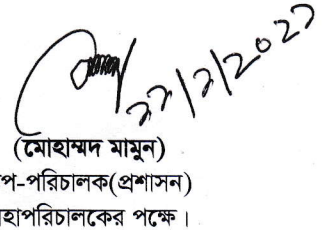 ২২/২/২০২২
(মোহাম্মদ মামুন)
প-পরিচালক(প্রশাসন)
হাপরিচালকের পক্ষে।